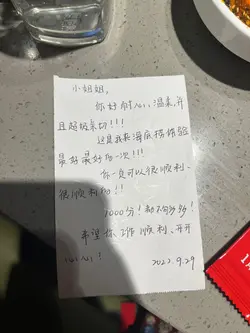 小姐姐，
你好耐心，温柔，并
且超级亲切！！！
这是我来海底捞体验
最好最好的一次！！！
你一定可以很顺利、
很顺利的！！
1000分！都不够多！
希望你工作顺利，开开
心心！ 2022.9.29